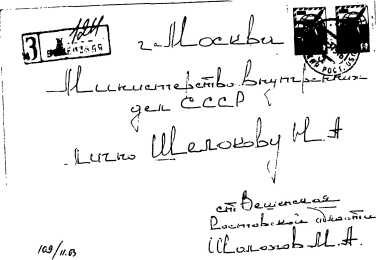 г. Москва
Министерство внутренних
дел СССР
лично Щелокову Н А
ст Вешенская
Ростовской области
Шолохов М. А.